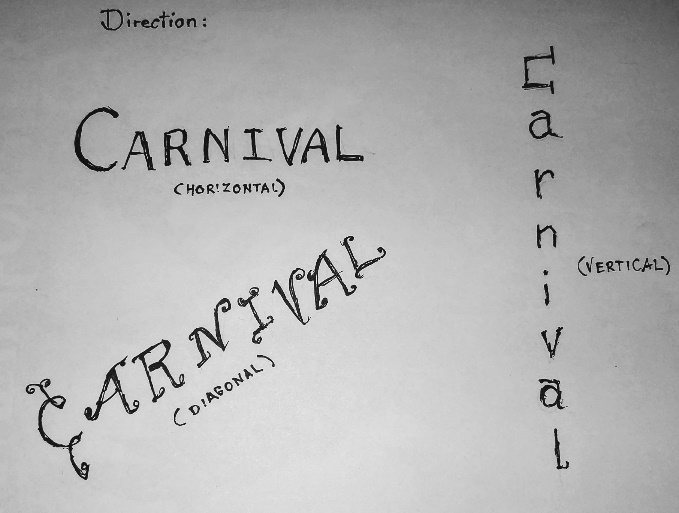 Direction:
CARNIVAL
(HORIZONTAL)
CARNIVAL
(DIAGONAL)
Carnival
(VERTICAL)